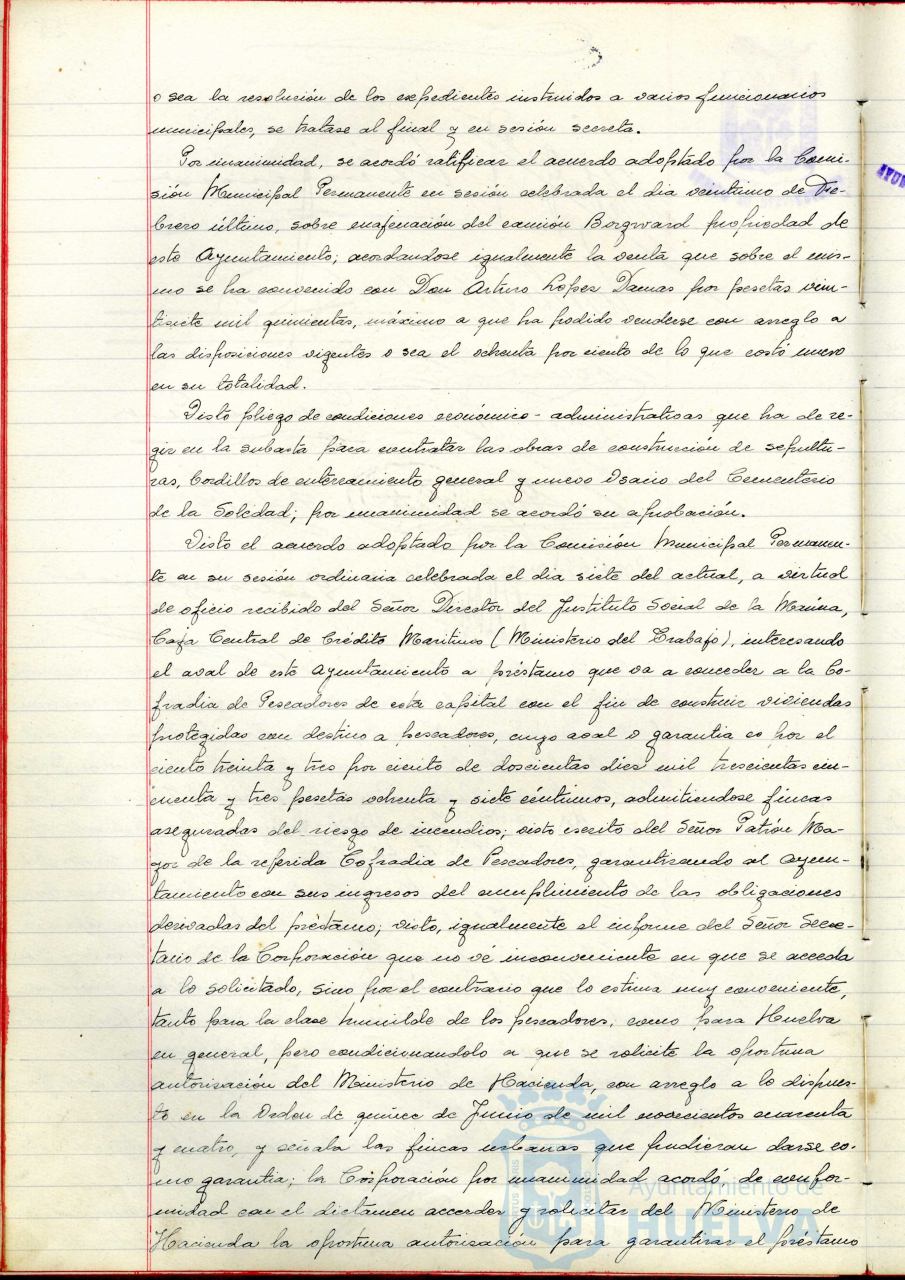 o sea la resolución de los expedientes instruidos a varios funcionarios
municipales, se tratase al final y en sesión secreta.
Por unanimidad, se acordó ratificar el acuerdo adoptado por la Comi-
sión Municipal Permanente en sesión celebrada el dia veintiuno de Fe-
brero último, sobre enajenación del camión Borgward propiedad de
este Ayuntamiento; acordandose igualmente la venta que sobre el mis-
mo se ha convenido con Don Arturo López Damas por pesetas vein-
tisiete mil quinientas, máximo a que ha podido venderse con arreglo a
las disposiciones vigentes o sea el ochenta por ciento de lo que costó nuevo
en su totalidad.
Visto pliego de condiciones económico-administrativas que ha de re-
gir en la subasta para contratar las obras de construcción de sepultu-
ras, bordillos de enterramiento general y nuevo Osario del Cementerio
de la Soledad; por unanimidad se acordó su aprobación.
Visto el acuerdo adoptado por la Comisión Municipal Permanen-
te en su sesión ordinaria celebrada el dia siete del actual, a virtud
de oficio recibido del Señor Director del Instituto Social de la Marina,
Caja Central de Crédito Maritimo (Ministerio del Trabajo), interesando
el aval de este Ayuntamiento a préstamo que va a conceder a la Co-
fradia de Pescadores de esta capital con el fin de construir viviendas
protegidas con destino a pescadores, cuyo aval o garantia es por el
ciento treinta y tres por ciento de doscientas diez mil trescientas cin-
cuenta y tres pesetas ochenta y siete céntimos, admitiendose fincas
aseguradas del riesgo de incendios; visto escrito del Señor Patrón Ma-
yor de la referida Cofradia de Pescadores, garantizando al Ayun-
tamiento con sus ingresos del cumplimiento de las obligaciones
derivadas del préstamo; visto, igualmente el informe del Señor Secre-
tario de la Corporación que no vé inconveniente en que se acceda
a lo solicitado, sino por el contrario que lo estima muy conveniente,
tanto para la clase humilde de los pescadores, como para Huelva
en general, pero condicionandolo a que se solicite la oportuna
autorización del Ministerio de Hacienda, con arreglo a lo dispues-
to en la Orden de quince de Junio de mil novecientos cuarenta
y cuatro, y señala las fincas urbanas que pudieran darse co-
mo garantia; la Corporación por unanimidad acordó, de confor-
midad con el dictamen acceder y solicitar del Ministerio de
Hacienda la oportuna autorización para garantizar el préstamo
Ayuntamiento de
HUELVA